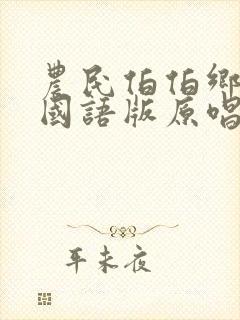 農民伯伯鄉
國語版原唱
平未夜